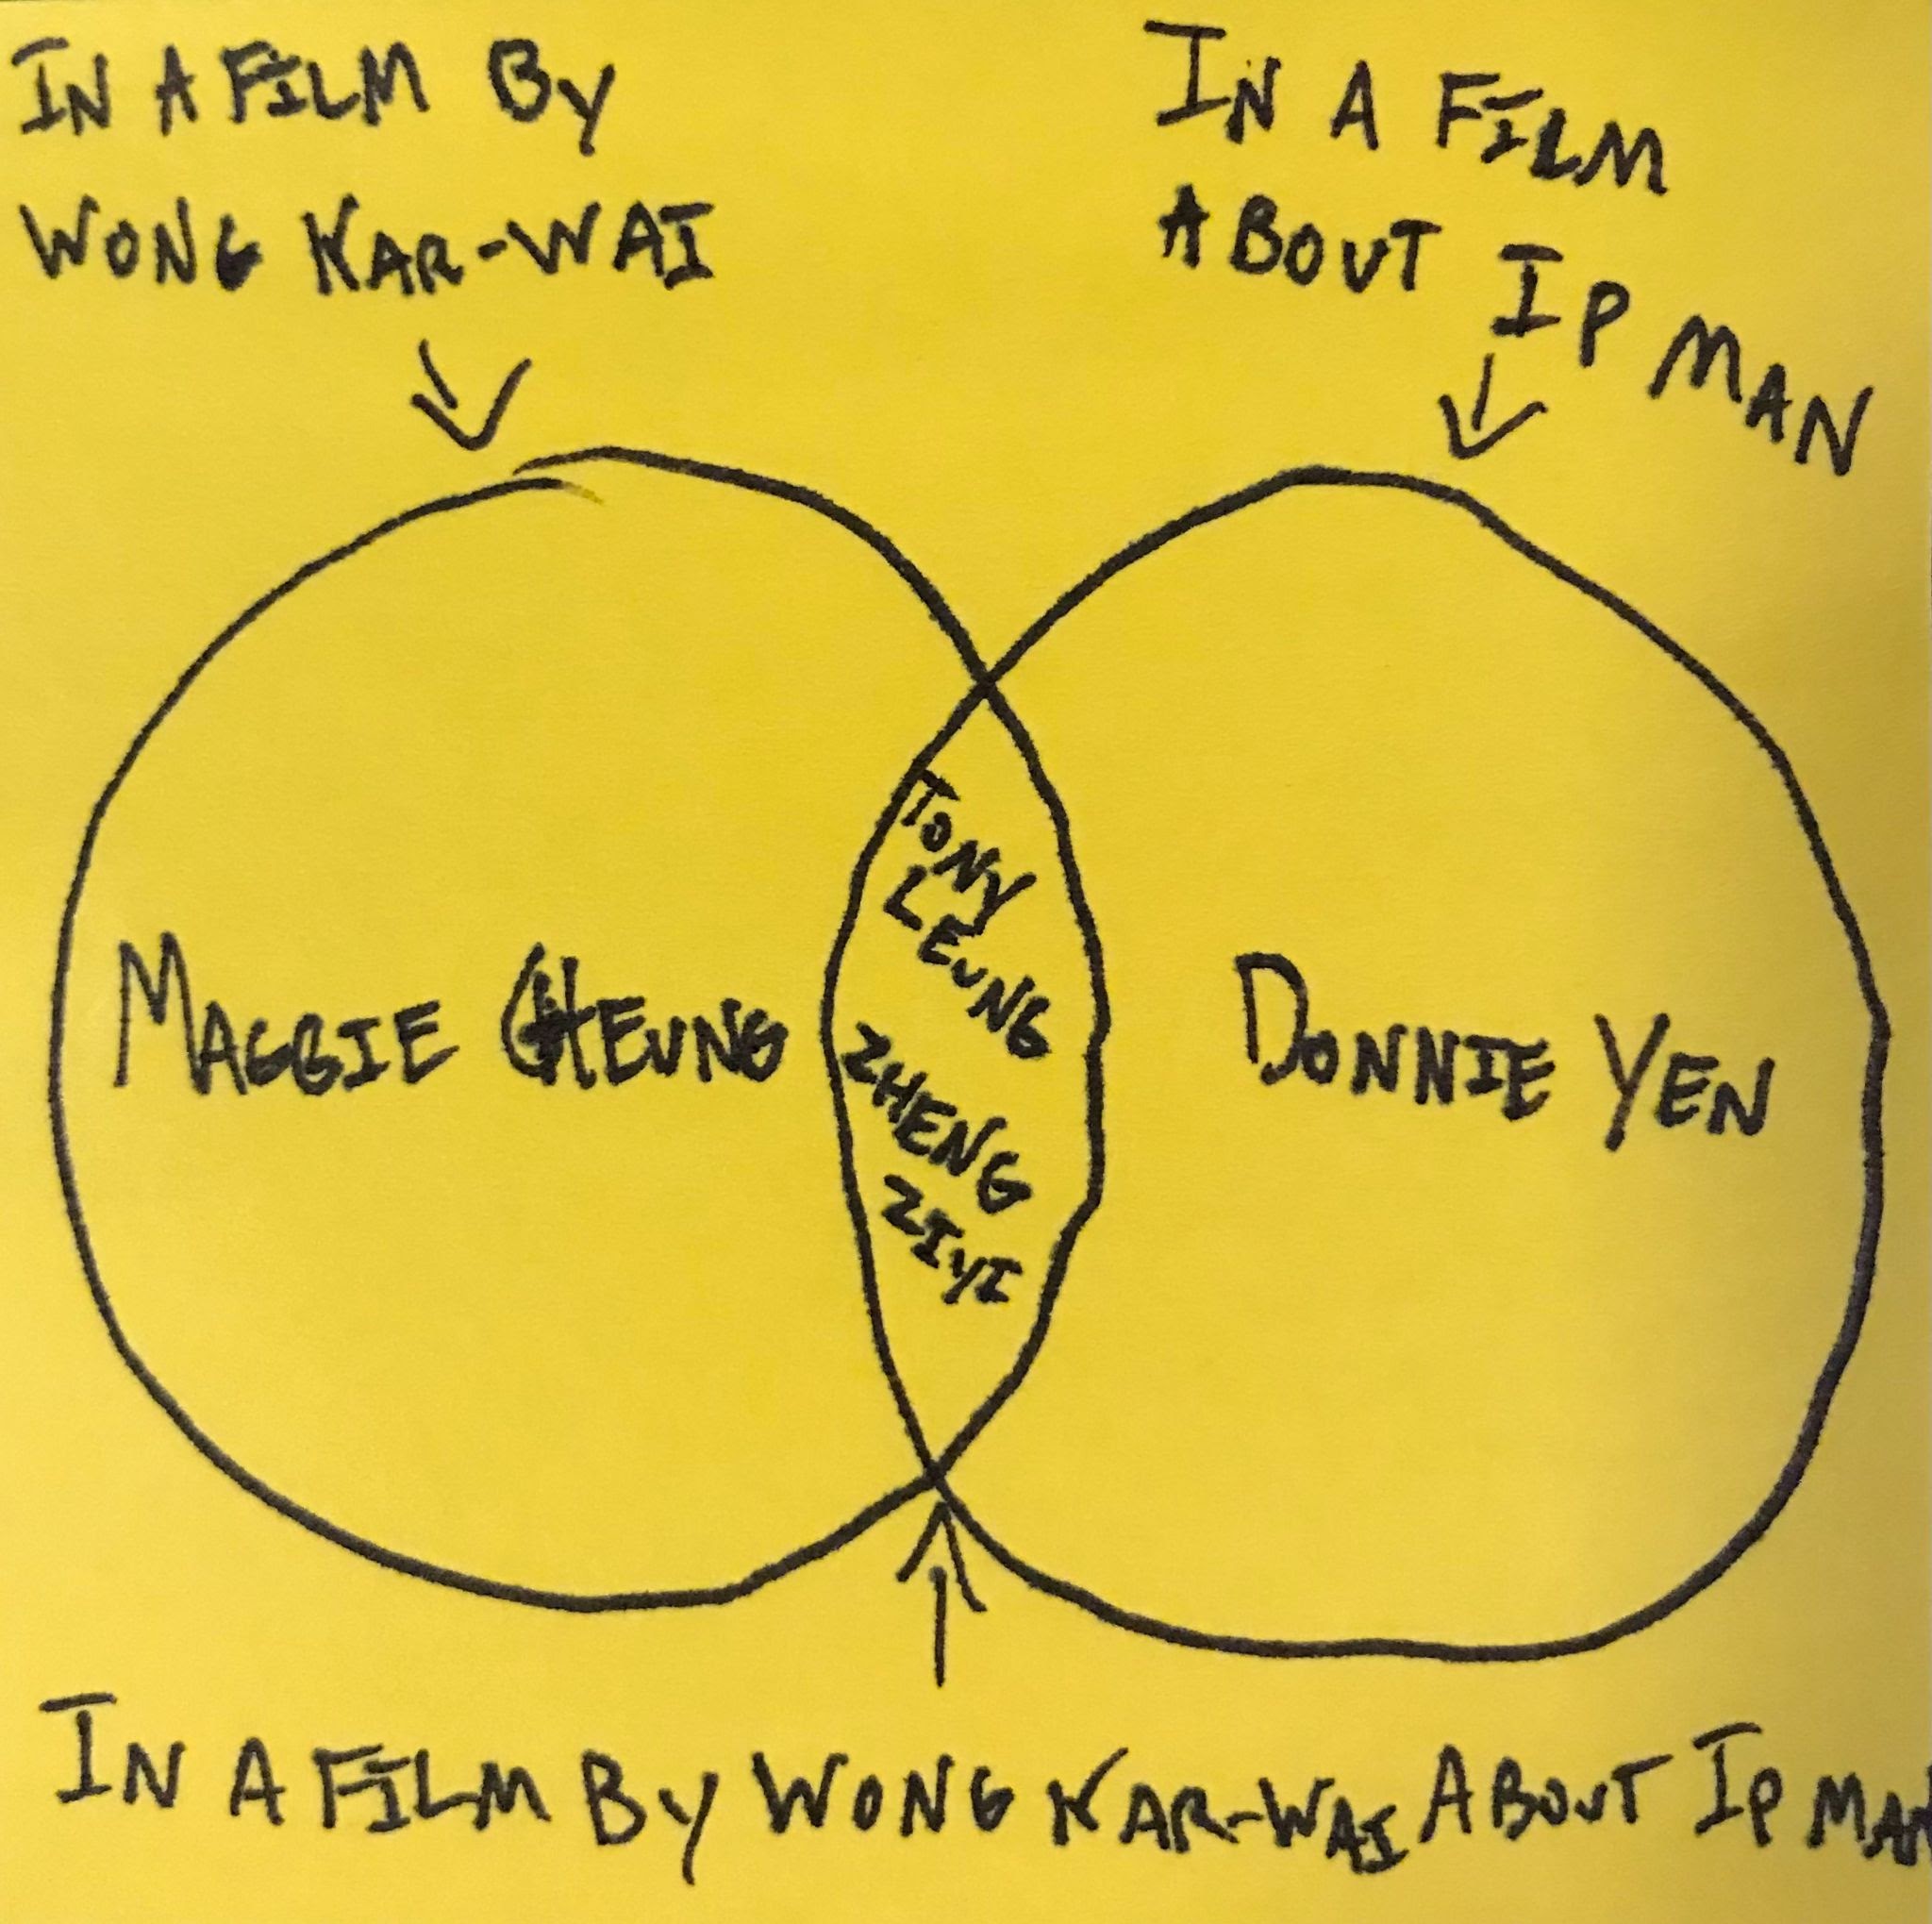 IN A FILM BY
WONG KAR-WAI
IN A FILM
ABOUT IP MAN
MAGGIE CHEUNG
TONY
LEUNG
ZHENG
ZIYI
DONNIE YEN
IN A FILM BY WONG KAR-WAI ABOUT IP MAN